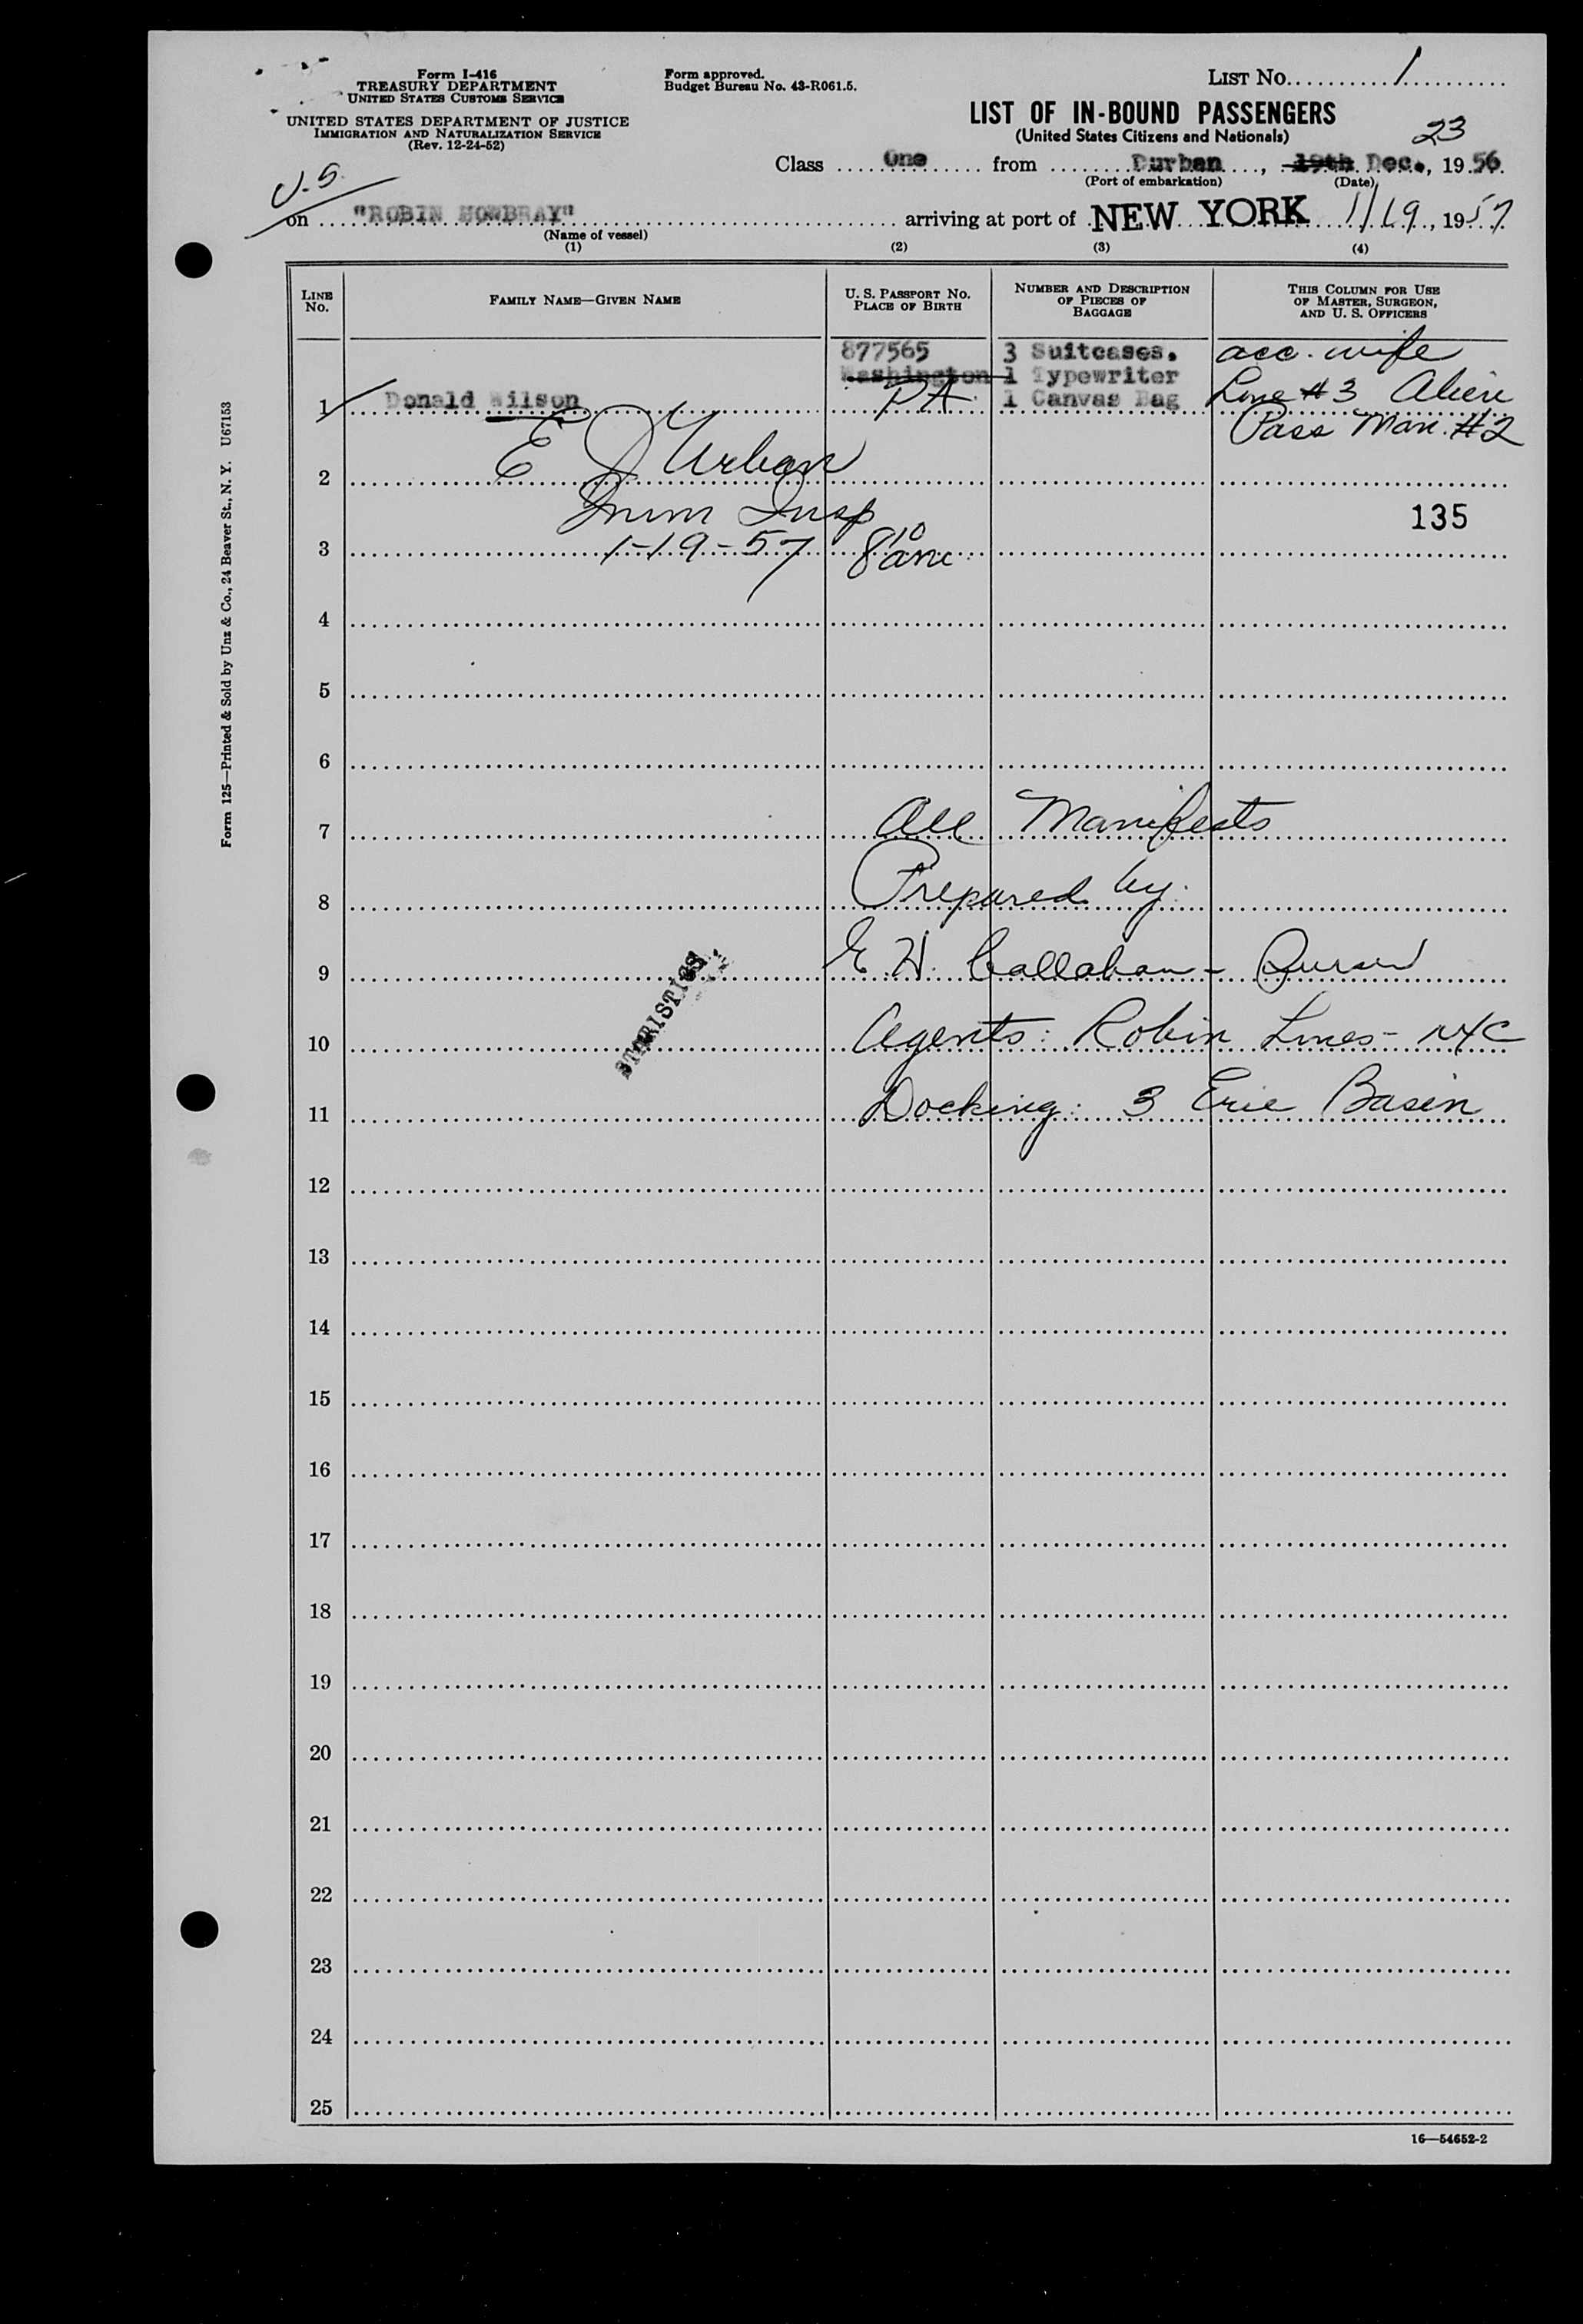 Form I-416
TREASURY DEPARTMENT
UNITED STATES CUSTOMS SERVICE
UNITED STATES DEPARTMENT OF JUSTICE
IMMIGRATION AND NATURALIZATION SERVICE
(Rev. 12-24-52)
Form approved.
Budget Bureau No. 43-R061.5.
LIST NO. 1
LIST OF IN-BOUND PASSENGERS
(United States Citizens and Nationals)
23
Class One from Durban, 19th Dec., 1956
(Port of embarkation) (Date)
U.S.
on "ROBIN MOWBRAY" arriving at port of NEW YORK 1/19, 1957
(Name of vessel)
(1) (2) (3) (4)
LINE NO.
FAMILY NAME—GIVEN NAME
U. S. PASSPORT NO. PLACE OF BIRTH
NUMBER AND DESCRIPTION OF PIECES OF BAGGAGE
THIS COLUMN FOR USE OF MASTER, SURGEON, AND U. S. OFFICERS
877565 3 Suitcases. acc. wife
Washington 1 Typewriter Line #3 Alien
1 Donald Wilson PA 1 Canvas Bag Pass Man. #2
2 E J Urban
Imm Insp 135
3 1-19-57 8 10 am
4
5
6
7 All Manifests
8 Prepared by:
9 E. H. Callahan - Purser
10 Agents: Robin Lines - NYC
11 Docking: 3 Erie Basin
12
13
14
15
16
17
18
19
20
21
22
23
24
25
16—54652-2
Form 125—Printed & Sold by Unz & Co., 24 Beaver St., N. Y. U67153